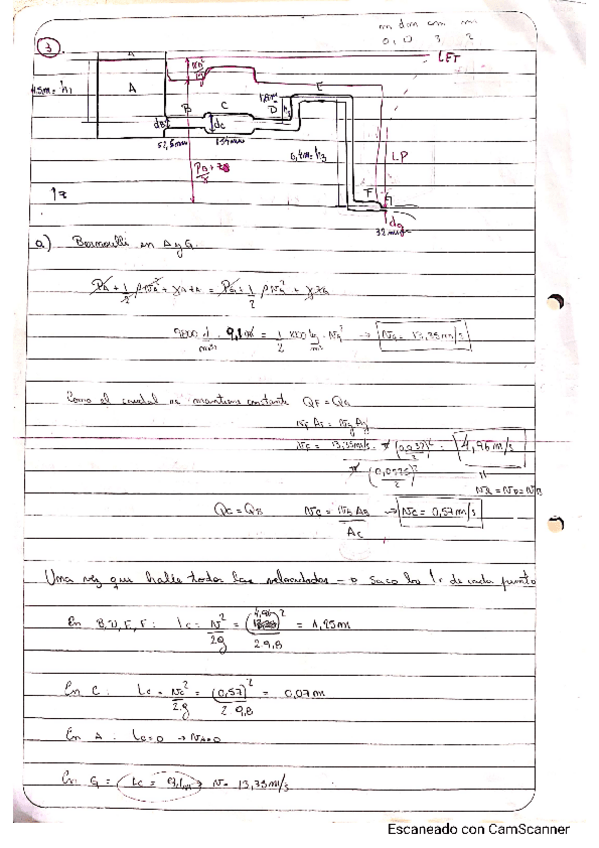 m dm cm m
0, 0 3 2
3
LET
A
A
4,5m = h1
B
C
D
E
dB
dc
52,5mm
PB + zB
γ
0,4m = h3
LP
F
G
dg
32mm
↑z
a) Bernoulli en A y G.
PA + 1/2 ρ vA² + γ zA = PG + 1/2 ρ vG² + γ zG
9800 N/m³ · 9,1m = 1/2 1000 kg/m³ · vG² → vG = 13,35 m/s
Como el caudal se mantiene constante QF = QG
vF AF = vG AG
vF = 13,35m/s · π (0,032/2)² / π (0,0525/2)² = 4,96 m/s
vE = vD = vB
QC = QB vC = vB AB / AC → vC = 0,57 m/s
Una vez que halle todas las velocidades → saco los lc de cada punto
En B, D, E, F: lc = v²/2g = (4,96)²/2 9,8 = 1,25m
En C: Lc = vC²/2g = (0,57)²/2·9,8 = 0,07m
En A: Lc=0 → vA=0
En G = Lc = 9,1m → v= 13,35 m/s
Escaneado con CamScanner